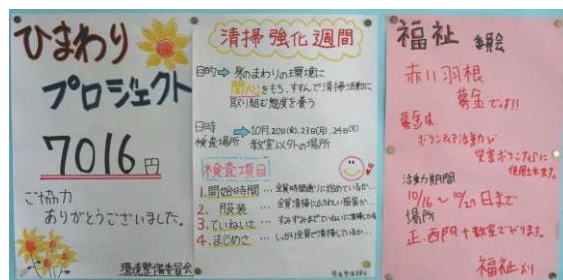 ひまわり
プロジェクト
7016円
ご協力
ありがとうございました。
環境整備委員会
清掃強化週間
目的⇨身のまわりの環境に
関心をもち、すすんで清掃活動に
取り組む態度を養う
日時→10月20日(金),23日(月),24日(火)
検査場所 教室以外の場所
検査項目
1.開始時間…全員時間通りに始めているか…
2.服装…全員清掃にふさわしい服装か…
3.ていねいさ…すみずみまでていねいに清掃しているか
4.まじめさ…しっかり全員が清掃しているか…
福祉委員会
赤い羽根
募金です!!
募金は
ボランティア活動や
災害ボランティアに
使用されます。
活動期間
10/16〜10/20日まで
場所
正、西門+教室でやります。
福祉より